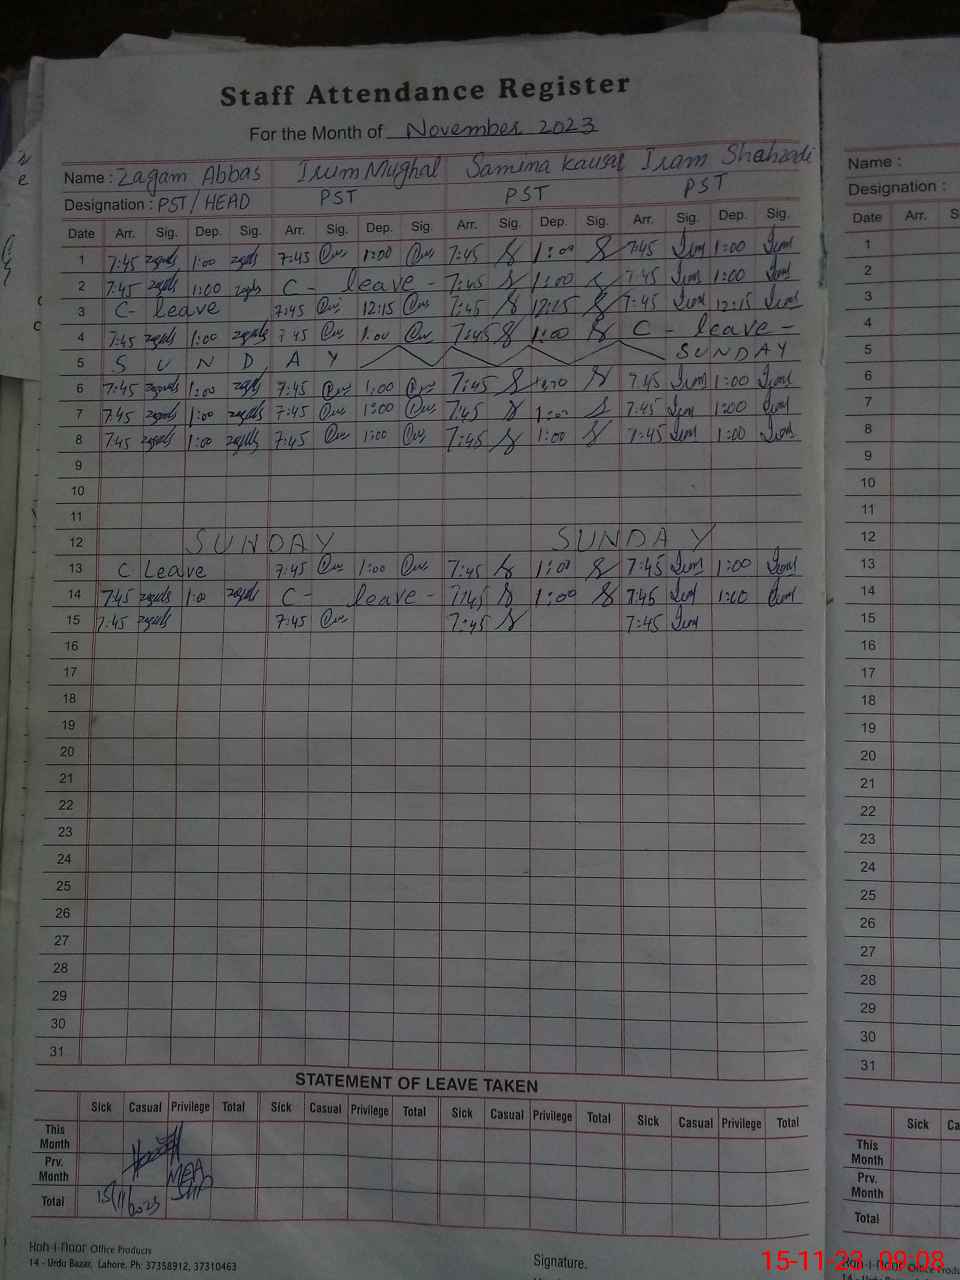 Staff Attendance Register
For the Month of November 2023
Name : Zagam Abbas Irum Mughal Samina Kausar Iram Shahzadi
Designation : PST/HEAD PST PST PST
Date Arr. Sig. Dep. Sig. Arr. Sig. Dep. Sig. Arr. Sig. Dep. Sig. Arr. Sig. Dep. Sig.
1 7:45 1:00 7:45 1:00 7:45 1:00 7:45 1:00
2 7:45 1:00 C - leave - 7:45 1:00 7:45 1:00
3 C- leave 7:45 12:15 7:45 12:15 7:45 12:15
4 7:45 1:00 7:45 1:00 7:45 1:00 C - leave -
5 S U N D A Y SUNDAY
6 7:45 1:00 7:45 1:00 7:45 7:45 1:00
7 7:45 1:00 7:45 1:00 7:45 1:00 7:45 1:00
8 7:45 1:00 7:45 1:00 7:45 1:00 7:45 1:00
9
10
11
12 SUNDAY SUNDAY
13 C Leave 7:45 1:00 7:45 1:00 7:45 1:00
14 7:45 1:00 C- leave - 7:45 1:00 7:45 1:00
15 7:45 7:45 7:45 7:45
16
17
18
19
20
21
22
23
24
25
26
27
28
29
30
31
STATEMENT OF LEAVE TAKEN
Sick Casual Privilege Total Sick Casual Privilege Total Sick Casual Privilege Total Sick Casual Privilege Total
This Month
Prv. Month
MEA
Total 15/11/2023
Koh-i-Noor Office Products
14 - Urdu Bazar, Lahore. Ph: 37358912, 37310463
Signature.
Name :
Designation :
Date Arr.
1
2
3
4
5
6
7
8
9
10
11
12
13
14
15
16
17
18
19
20
21
22
23
24
25
26
27
28
29
30
31
Sick
This Month
Prv. Month
Total
15-11-23 09:08